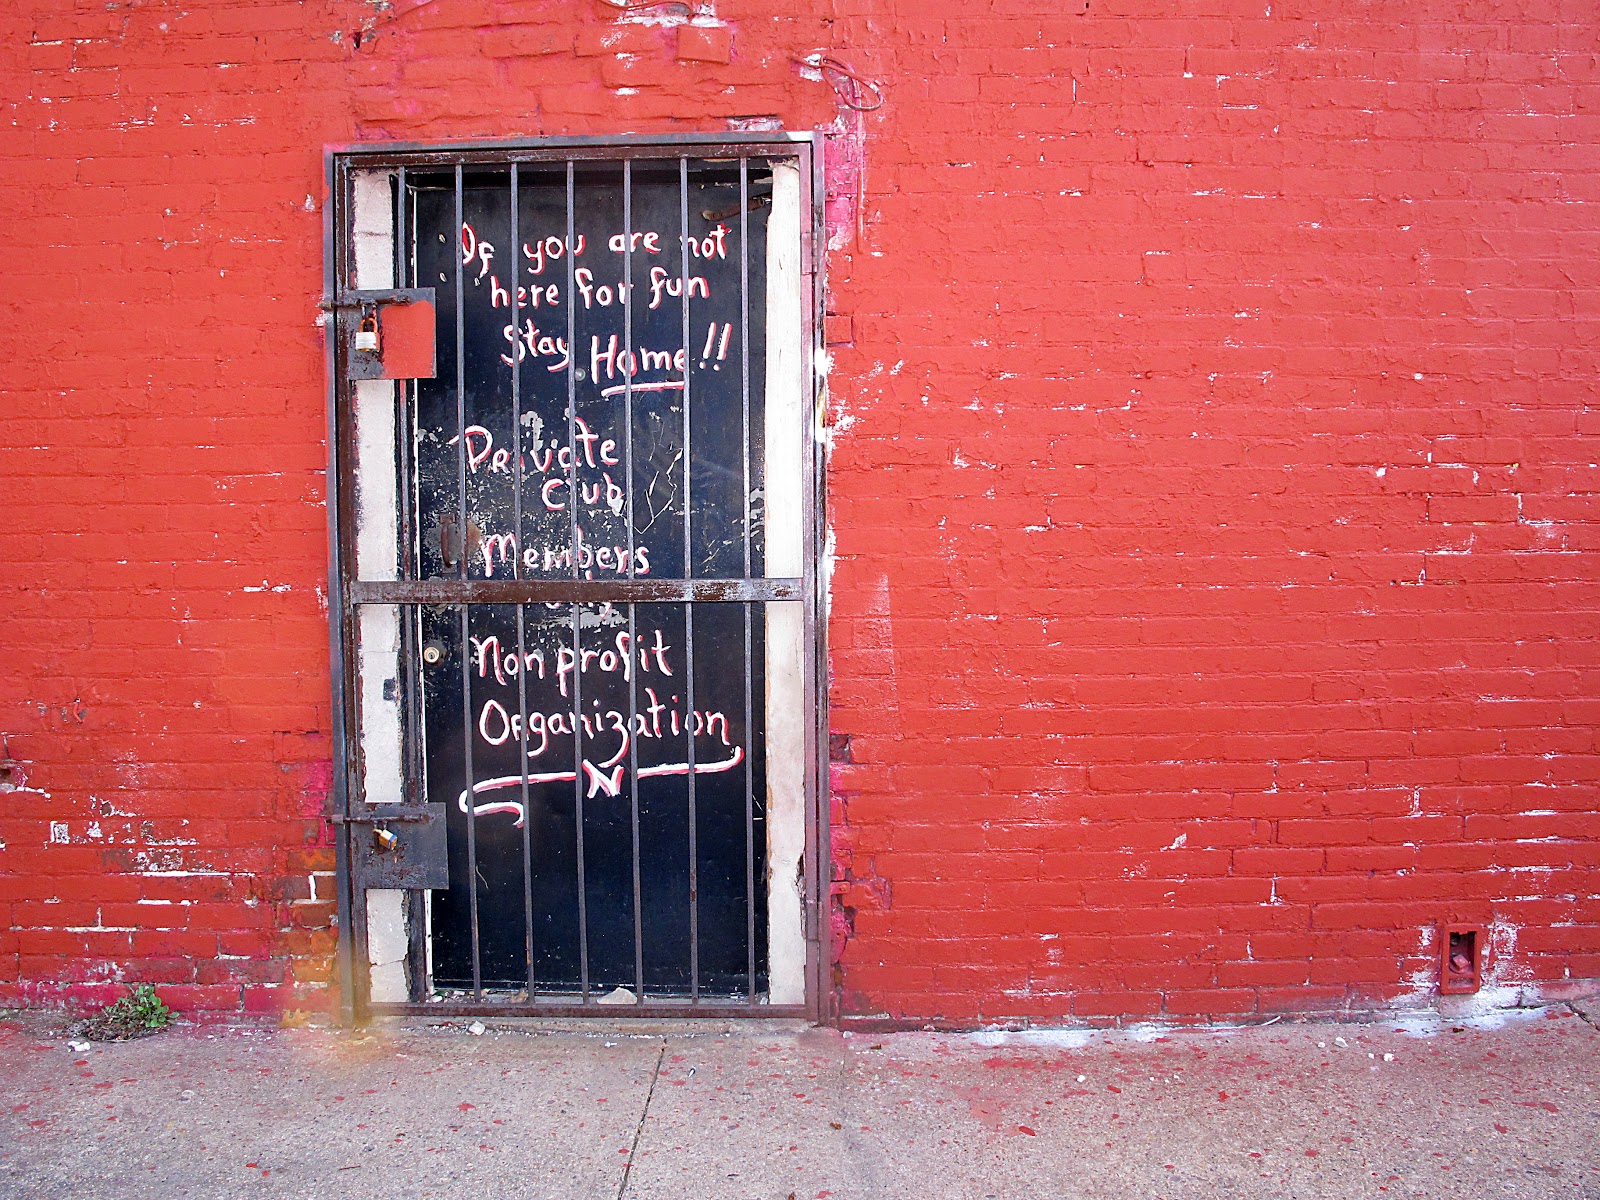 If you are not
here for fun
Stay Home!!
Private
Club
Members
Non profit
Organization